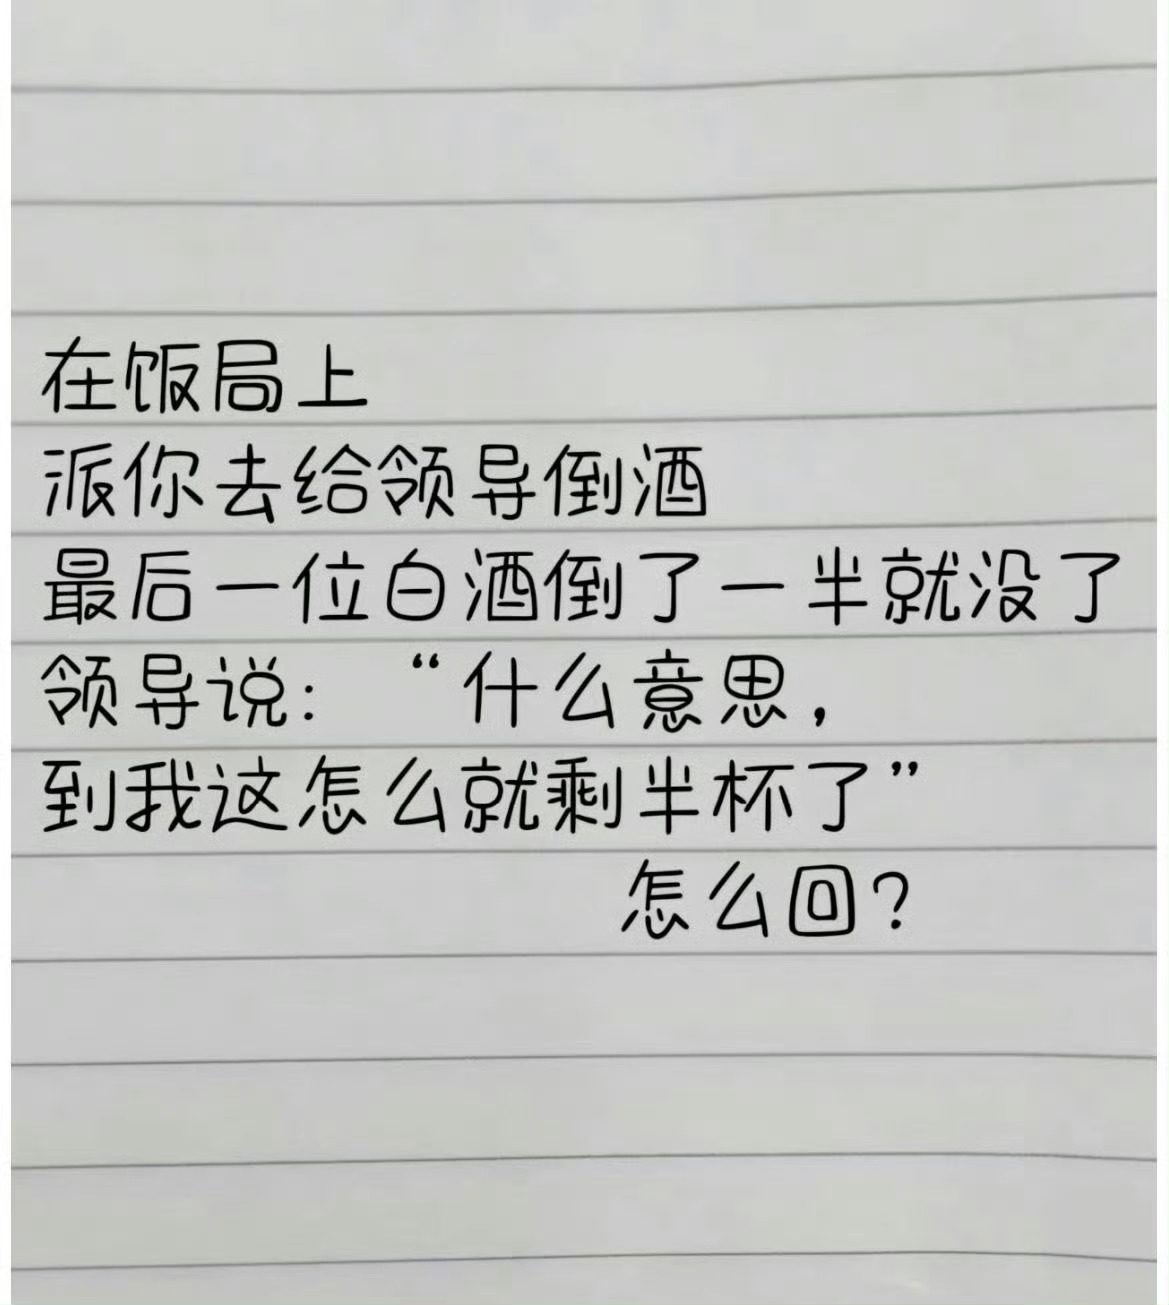 在饭局上
派你去给领导倒酒
最后一位白酒倒了一半就没了
领导说：“什么意思，
到我这怎么就剩半杯了”
怎么回？